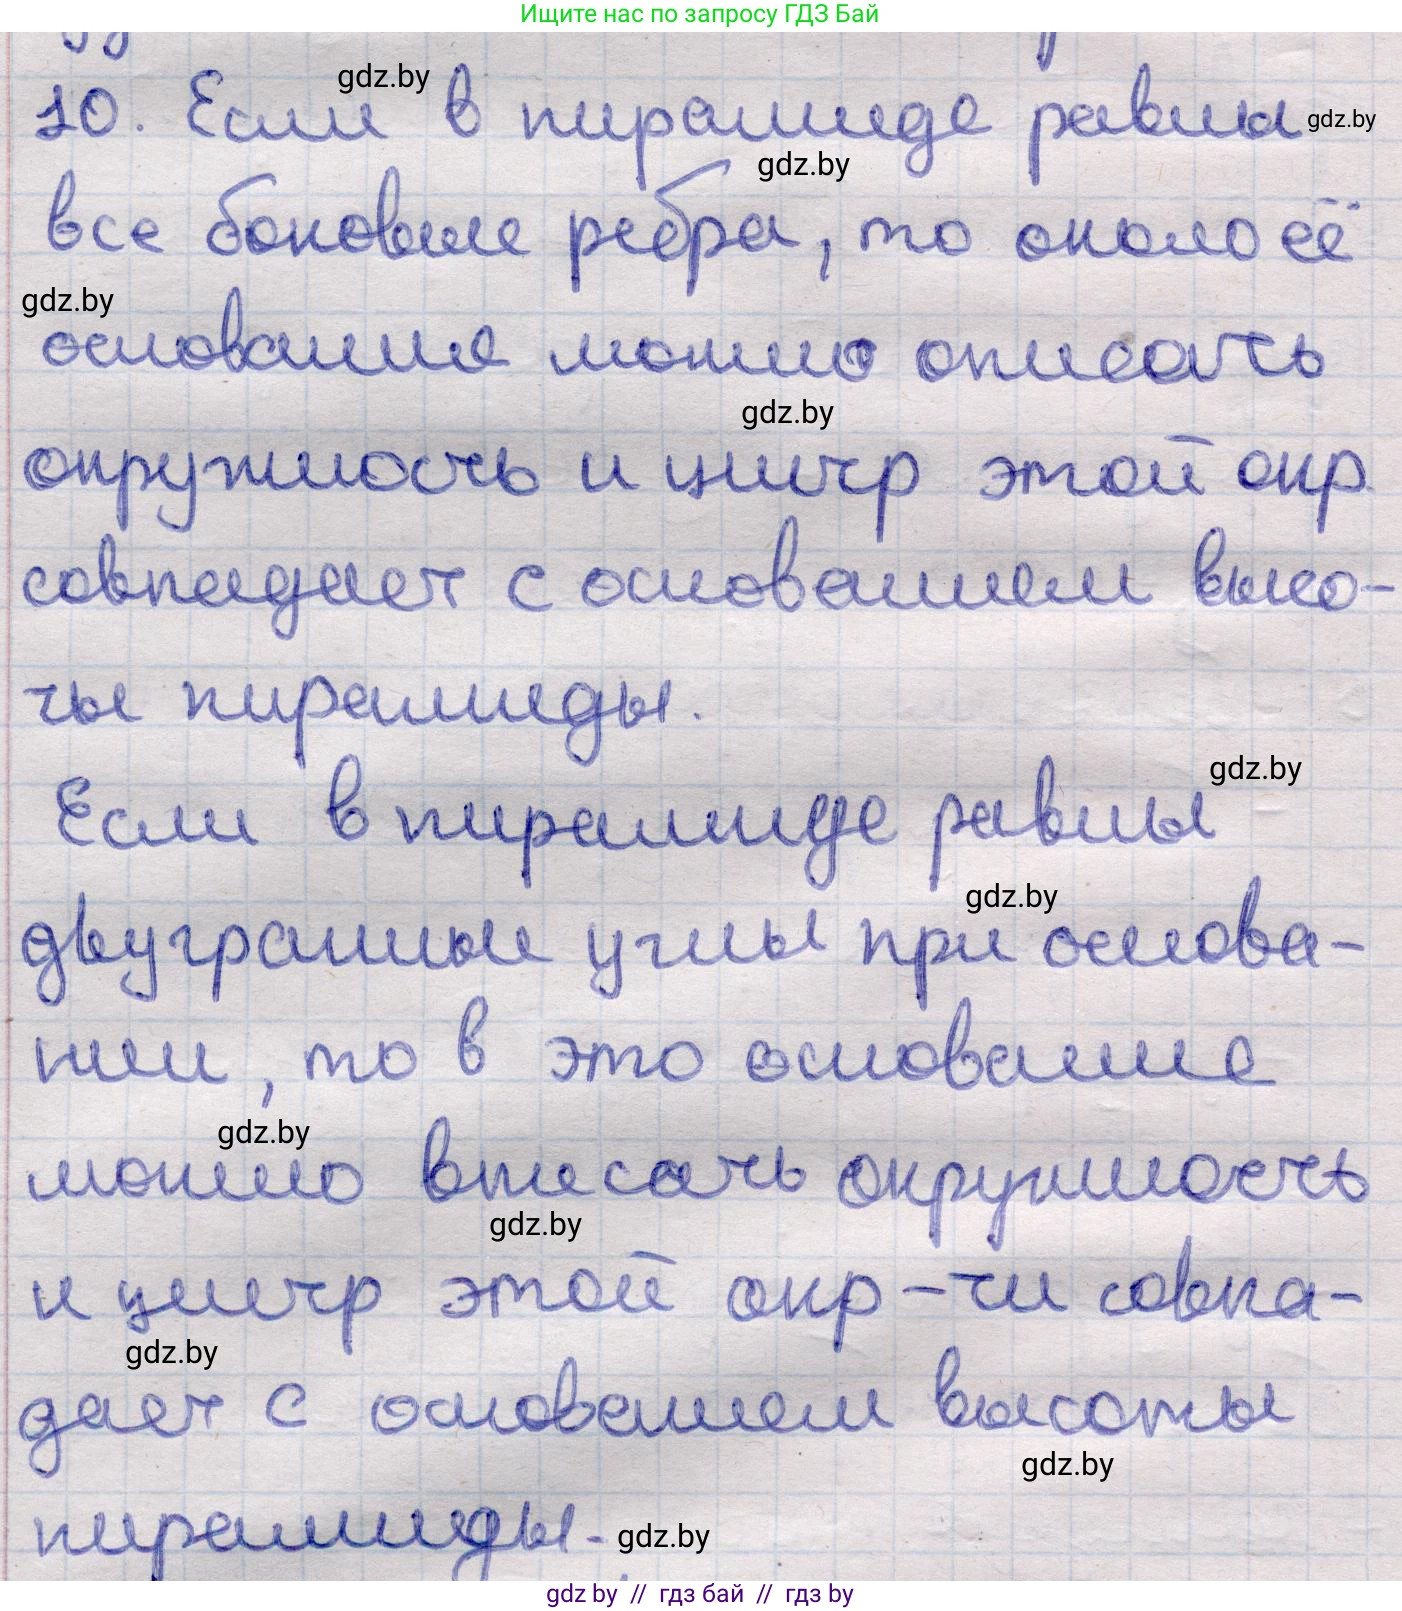 Ищите нас по запросу ГДЗ Бай
gdz.by
10. Если в пирамиде равны gdz.by
gdz.by
все боковые ребра, то около её
gdz.by
основания можно описать
gdz.by
окружность и центр этой окр.
совпадает с основанием высо-
ты пирамиды.
gdz.by
Если в пирамиде равны
gdz.by
двугранные углы при основа-
нии, то в это основание
gdz.by
можно вписать окружность
gdz.by
и центр этой окр-ти совпа-
gdz.by
дает с основанием высоты
gdz.by
пирамиды. gdz.by
gdz by // гдз бай // гдз by